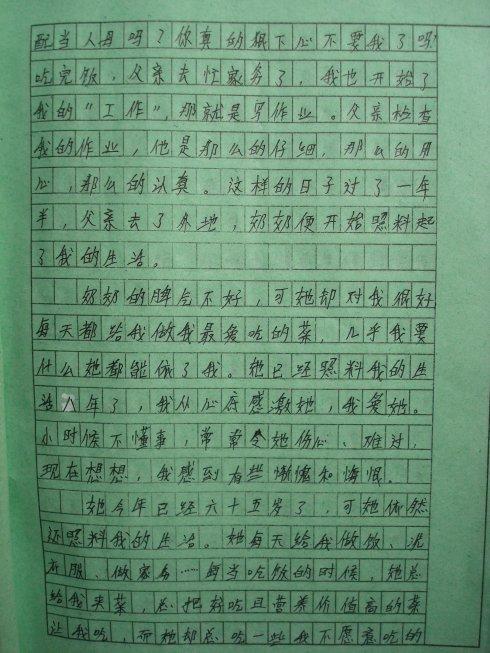 配当人母吗？你真的狠下心不要我了吗？
吃完饭，父亲去忙家务了，我也开始了
我的“工作”，那就是写作业。父亲检查
我的作业，他是那么的仔细，那么的用
心，那么的认真。这样的日子过了一年
半，父亲去了外地，奶奶便开始照料起
了我的生活。
奶奶的脾气不好，可她却对我很好，
每天都给我做我最爱吃的菜，几乎我要
什么她都能依了我。她已经照料我的生
活八年了，我从心底感激她，我爱她。
小时候不懂事，常常令她伤心、难过，
现在想想，我感到有些惭愧和悔恨。
她今年已经六十五岁了，可她依然
还照料我的生活。她每天给我做饭、洗
衣服、做家务……每当吃饭的时候，她总
给我夹菜，总把好吃且营养价值高的菜
让我吃，而她却总吃一些我不愿意吃的